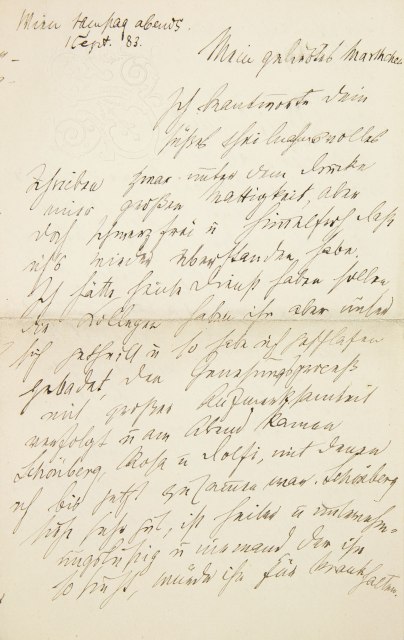 Wien Samstag abends.
1 Sept. 83.
Mein geliebtes Marthchen
Ich beantworte Dein
süßes theilnahmsvolles
Schreiben zwar unter dem Drucke
einer großen Mattigkeit, aber
doch schmerzfrei u
wieder überstanden habe.
Ich hätte heute Dienst haben sollen
die Collegen haben ihn aber unter
sich getheilt u so habe ich geschlafen
gebadet, den Genesungsproceß
mit großer Aufmerksamkeit
verfolgt u am Abend kamen
Schönberg, Rosa u Dolfi, mit denen
ich bis jetzt zusammen war. Schönberg
sehr gut, ist heiter u unternehm-
ungslustig u niemand der ihn
so sieht, würde ihn für krank halten.